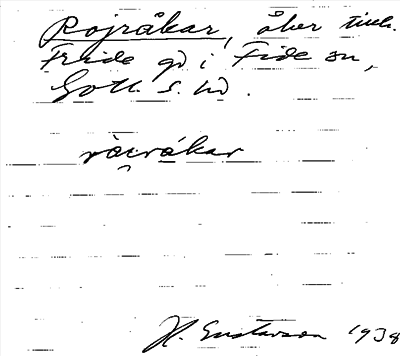 Rojråkar, åker tillh.
Fride gd i Fide sn,
Gotl. s. hd.
ròi̯råkar
H. Gustavson 1938